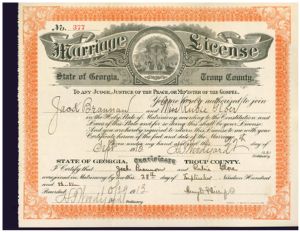 No. 377
Marriage License
State of Georgia, Troup County.
TO ANY JUDGE, JUSTICE OF THE PEACE, OR MINISTER OF THE GOSPEL.
You are hereby authorized to join
Jack Brannan and Miss Rubie Glore
in the Holy State of Matrimony according to the Constitution and
Laws of this State and for so doing this shall be your License. And
you are hereby required to return this License to me with your
Certificate hereon of the fact and date of the Marriage.
Sept 1913
STATE OF GEORGIA, Certificate TROUP COUNTY.
I Certify that Jack Brannan and Rubie Glore
were joined in Matrimony by me this 28th day of September Nineteen Hundred
and
Recorded 10/29/13